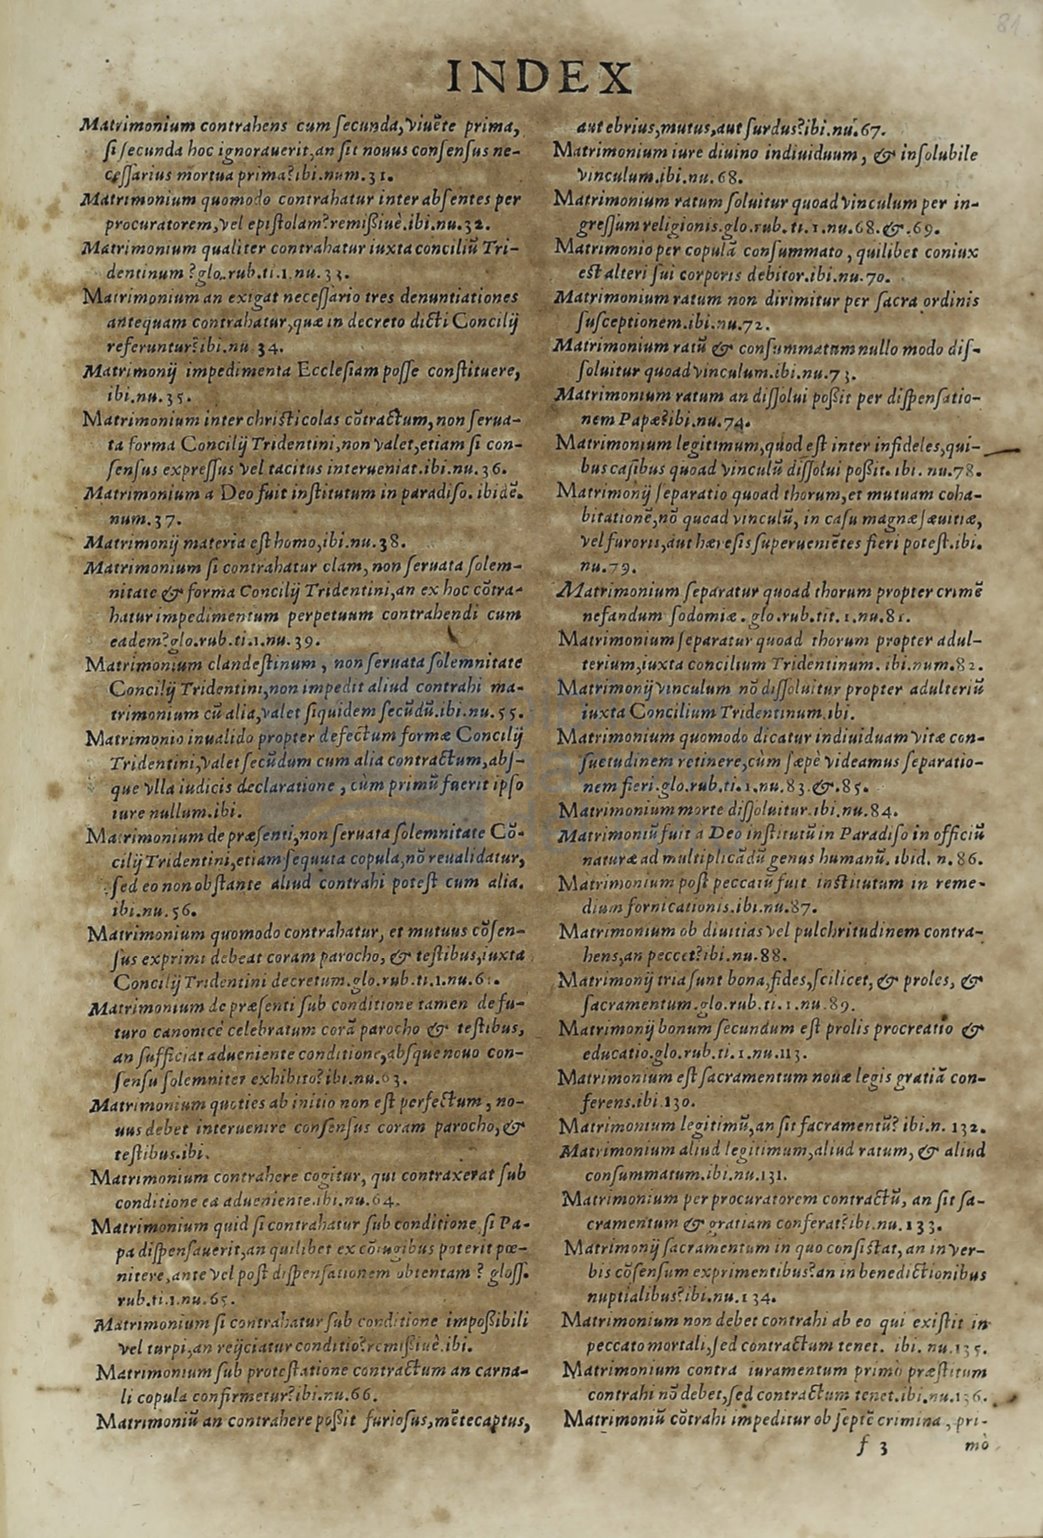 81
INDEX
Matrimonium contrahens cum ſecunda, viuēte prima,
ſi ſecunda hoc ignorauerit, an ſit nouus conſenſus ne-
ceſſarius mortua prima? ibi. num. 31.
Matrimonium quomodo contrahatur inter abſentes per
procuratorem, vel epiſtolam? remißiuè. ibi. nu. 32.
Matrimonium qualiter contrahatur iuxta conciliū Tri-
dentinum? glo. rub. ti. 1. nu. 33.
Matrimonium an exigat neceſſario tres denuntiationes
antequam contrahatur, quæ in decreto dicti Concilij
referuntur? ibi. nu. 34.
Matrimonij impedimenta Eccleſiam poſſe conſtituere,
ibi. nu. 35.
Matrimonium inter chriſticolas cōtractum, non ſerua-
ta forma Concilij Tridentini, non valet, etiam ſi con-
ſenſus expreſſus vel tacitus interueniat. ibi. nu. 36.
Matrimonium a Deo fuit inſtitutum in paradiſo. ibidē.
num. 37.
Matrimonij materia eſt homo, ibi. nu. 38.
Matrimonium ſi contrahatur clam, non ſeruata ſolem-
nitate & forma Concilij Tridentini, an ex hoc cōtra-
hatur impedimentum perpetuum contrahendi cum
eadem? glo. rub. ti. 1. nu. 39.
Matrimonium clandeſtinum, non ſeruata ſolemnitate
Concilij Tridentini, non impedit aliud contrahi ma-
trimonium cū alia, valet ſiquidem ſecūdū. ibi. nu. 55.
Matrimonio inualido propter defectum formæ Concilij
Tridentini, valet ſecūdum cum alia contractum, abſ-
que vlla iudicis declaratione, cùm primū fuerit ipſo
iure nullum. ibi.
Matrimonium de præſenti, non ſeruata ſolemnitate Cō-
cilij Tridentini, etiam ſequuta copula, nō reualidatur,
ſed eo non obſtante aliud contrahi poteſt cum alia.
ibi. nu. 56.
Matrimonium quomodo contrahatur, et mutuus cōſen-
ſus exprimi debeat coram parocho, & teſtibus, iuxta
Concilij Tridentini decretum. glo. rub. ti. 1. nu. 6
Matrimonium de præſenti ſub conditione tamen de fu-
turo canonicè celebratum corā parocho & teſtibus,
an ſufficiat adueniente conditione, abſque nouo con-
ſenſu ſolemniter exhibito? ibi. nu. 63.
Matrimonium quoties ab initio non eſt perfectum, no-
uus debet interuenire conſenſus coram parocho, &
teſtibus. ibi.
Matrimonium contrahere cogitur, qui contraxerat ſub
conditione ea adueniente. ibi. nu. 64.
Matrimonium quid ſi contrahatur ſub conditione, ſi Pa-
pa diſpenſauerit, an quilibet ex cōiugibus poterit pœ-
nitere, ante vel poſt diſpenſationem obtentam? gloſſ.
rub. ti. 1. nu. 65.
Matrimonium ſi contrahatur ſub conditione impoßibili
vel turpi, an reijciatur conditio? remißiuè. ibi.
Matrimonium ſub proteſtatione contractum an carna-
li copula confirmetur? ibi. nu. 66.
Matrimoniū an contrahere poßit furioſus, mētecaptus,
aut ebrius, mutus, aut ſurdus? ibi. nu. 67.
Matrimonium iure diuino indiuiduum, & inſolubile
vinculum. ibi. nu. 68.
Matrimonium ratum ſoluitur quoad vinculum per in-
greſſum religionis. glo. rub. ti. 1. nu. 68. &. 69.
Matrimonio per copulā conſummato, quilibet coniux
eſt alteri ſui corporis debitor. ibi. nu. 70.
Matrimonium ratum non dirimitur per ſacra ordinis
ſuſceptionem. ibi. nu. 72.
Matrimonium ratū & conſummatum nullo modo diſ-
ſoluitur quoad vinculum. ibi. nu. 73.
Matrimonium ratum an diſſolui poßit per diſpenſatio-
nem Papæ? ibi. nu. 74.
Matrimonium legitimum, quod eſt inter infideles, qui-
bus caſibus quoad vinculū diſſolui poßit. ibi. nu. 78.
Matrimonij ſeparatio quoad thorum, et mutuam coha-
bitationē, nō quoad vinculū, in caſu magnæ ſæuitiæ,
vel furoris, aut hæreſis ſuperueniētes fieri poteſt. ibi.
nu. 79.
Matrimonium ſeparatur quoad thorum propter crimē
nefandum ſodomiæ. glo. rub. tit. 1. nu. 81.
Matrimonium ſeparatur quoad thorum propter adul-
terium, iuxta concilium Tridentinum. ibi. num. 82.
Matrimonij vinculum nō diſſoluitur propter adulteriū
iuxta Concilium Tridentinum. ibi.
Matrimonium quomodo dicatur indiuiduam vitæ con-
ſuetudinem retinere, cùm ſæpè videamus ſeparatio-
nem fieri. glo. rub. ti. 1. nu. 83. &. 85.
Matrimonium morte diſſoluitur. ibi. nu. 84.
Matrimoniū fuit à Deo inſtitutū in Paradiſo in officiū
naturæ ad multiplicādū genus humanū. ibid. n. 86.
Matrimonium poſt peccatū fuit inſtitutum in reme-
dium fornicationis. ibi. nu. 87.
Matrimonium ob diuitias vel pulchritudinem contra-
hens, an peccet? ibi. nu. 88.
Matrimonij tria ſunt bona, fides, ſcilicet, & proles, &
ſacramentum. glo. rub. ti. 1. nu. 89.
Matrimonij bonum ſecundum eſt prolis procreatio &
educatio. glo. rub. ti. 1. nu. 113.
Matrimonium eſt ſacramentum nouæ legis gratiā con-
ferens. ibi. 130.
Matrimonium legitimū, an ſit ſacramentū? ibi. n. 132.
Matrimonium aliud legitimum, aliud ratum, & aliud
conſummatum. ibi. nu. 131.
Matrimonium per procuratorem contractū, an ſit ſa-
cramentum & gratiam conferat? ibi. nu. 133.
Matrimonij ſacramentum in quo conſiſtat, an in ver-
bis cōſenſum exprimentibus? an in benedictionibus
nuptialibus? ibi. nu. 134.
Matrimonium non debet contrahi ab eo qui exiſtit in
peccato mortali, ſed contractum tenet. ibi. nu. 135.
Matrimonium contra iuramentum primò præſtitum
contrahi nō debet, ſed contractum tenet. ibi. nu. 136.
Matrimoniū cōtrahi impeditur ob ſeptē crimina, pri-
f 3 mò